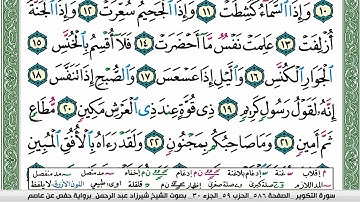 ١٠ وَإِذَا ٱلسَّمَآءُ كُشِطَتْ ١١ وَإِذَا ٱلْجَحِيمُ سُعِّرَتْ ١٢ وَإِذَا ٱلْجَنَّةُ
أُزْلِفَتْ ١٣ عَلِمَتْ نَفْسٌ مَّآ أَحْضَرَتْ ١٤ فَلَآ أُقْسِمُ بِٱلْخُنَّسِ ١٥
ٱلْجَوَارِ ٱلْكُنَّسِ ١٦ وَٱلَّيْلِ إِذَا عَسْعَسَ ١٧ وَٱلصُّبْحِ إِذَا تَنَفَّسَ ١٨
إِنَّهُۥ لَقَوْلُ رَسُولٍ كَرِيمٍ ١٩ ذِى قُوَّةٍ عِندَ ذِى ٱلْعَرْشِ مَكِينٍ ٢٠ مُّطَاعٍ
ثَمَّ أَمِينٍ ٢١ وَمَا صَاحِبُكُم بِمَجْنُونٍ ٢٢ وَلَقَدْ رَءَاهُ بِٱلْأُفُقِ ٱلْمُبِينِ
سورة التكوير الصفحة ٥٨٦ الحزب ٥٩ الجزء ٣٠ بصوت الشيخ شيرزاد عبد الرحمن برواية حفص عن عاصم